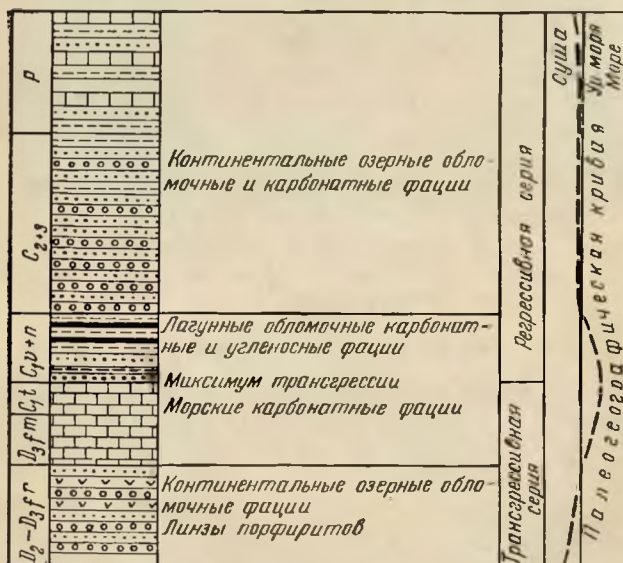 P
C₂₊₃
C₁v+n
C₁t
D₃fm
D₂-D₃fr
Континентальные озерные обло-
мочные и карбонатные фации
Лагунные обломочные карбонат-
ные и угленосные фации
Миксимум трансгрессии
Морские карбонатные фации
Континентальные озерные обло-
мочные фации
Линзы порфиритов
Регрессивная серия
Трансгрессивная
серия
Суша
Ур. моря
Море
Палеогеографическая кривия